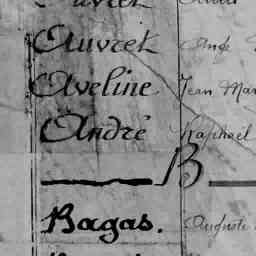 Auvret Ange
Aveline Jean Mar
André Raphaël
B
Bagas. Auguste